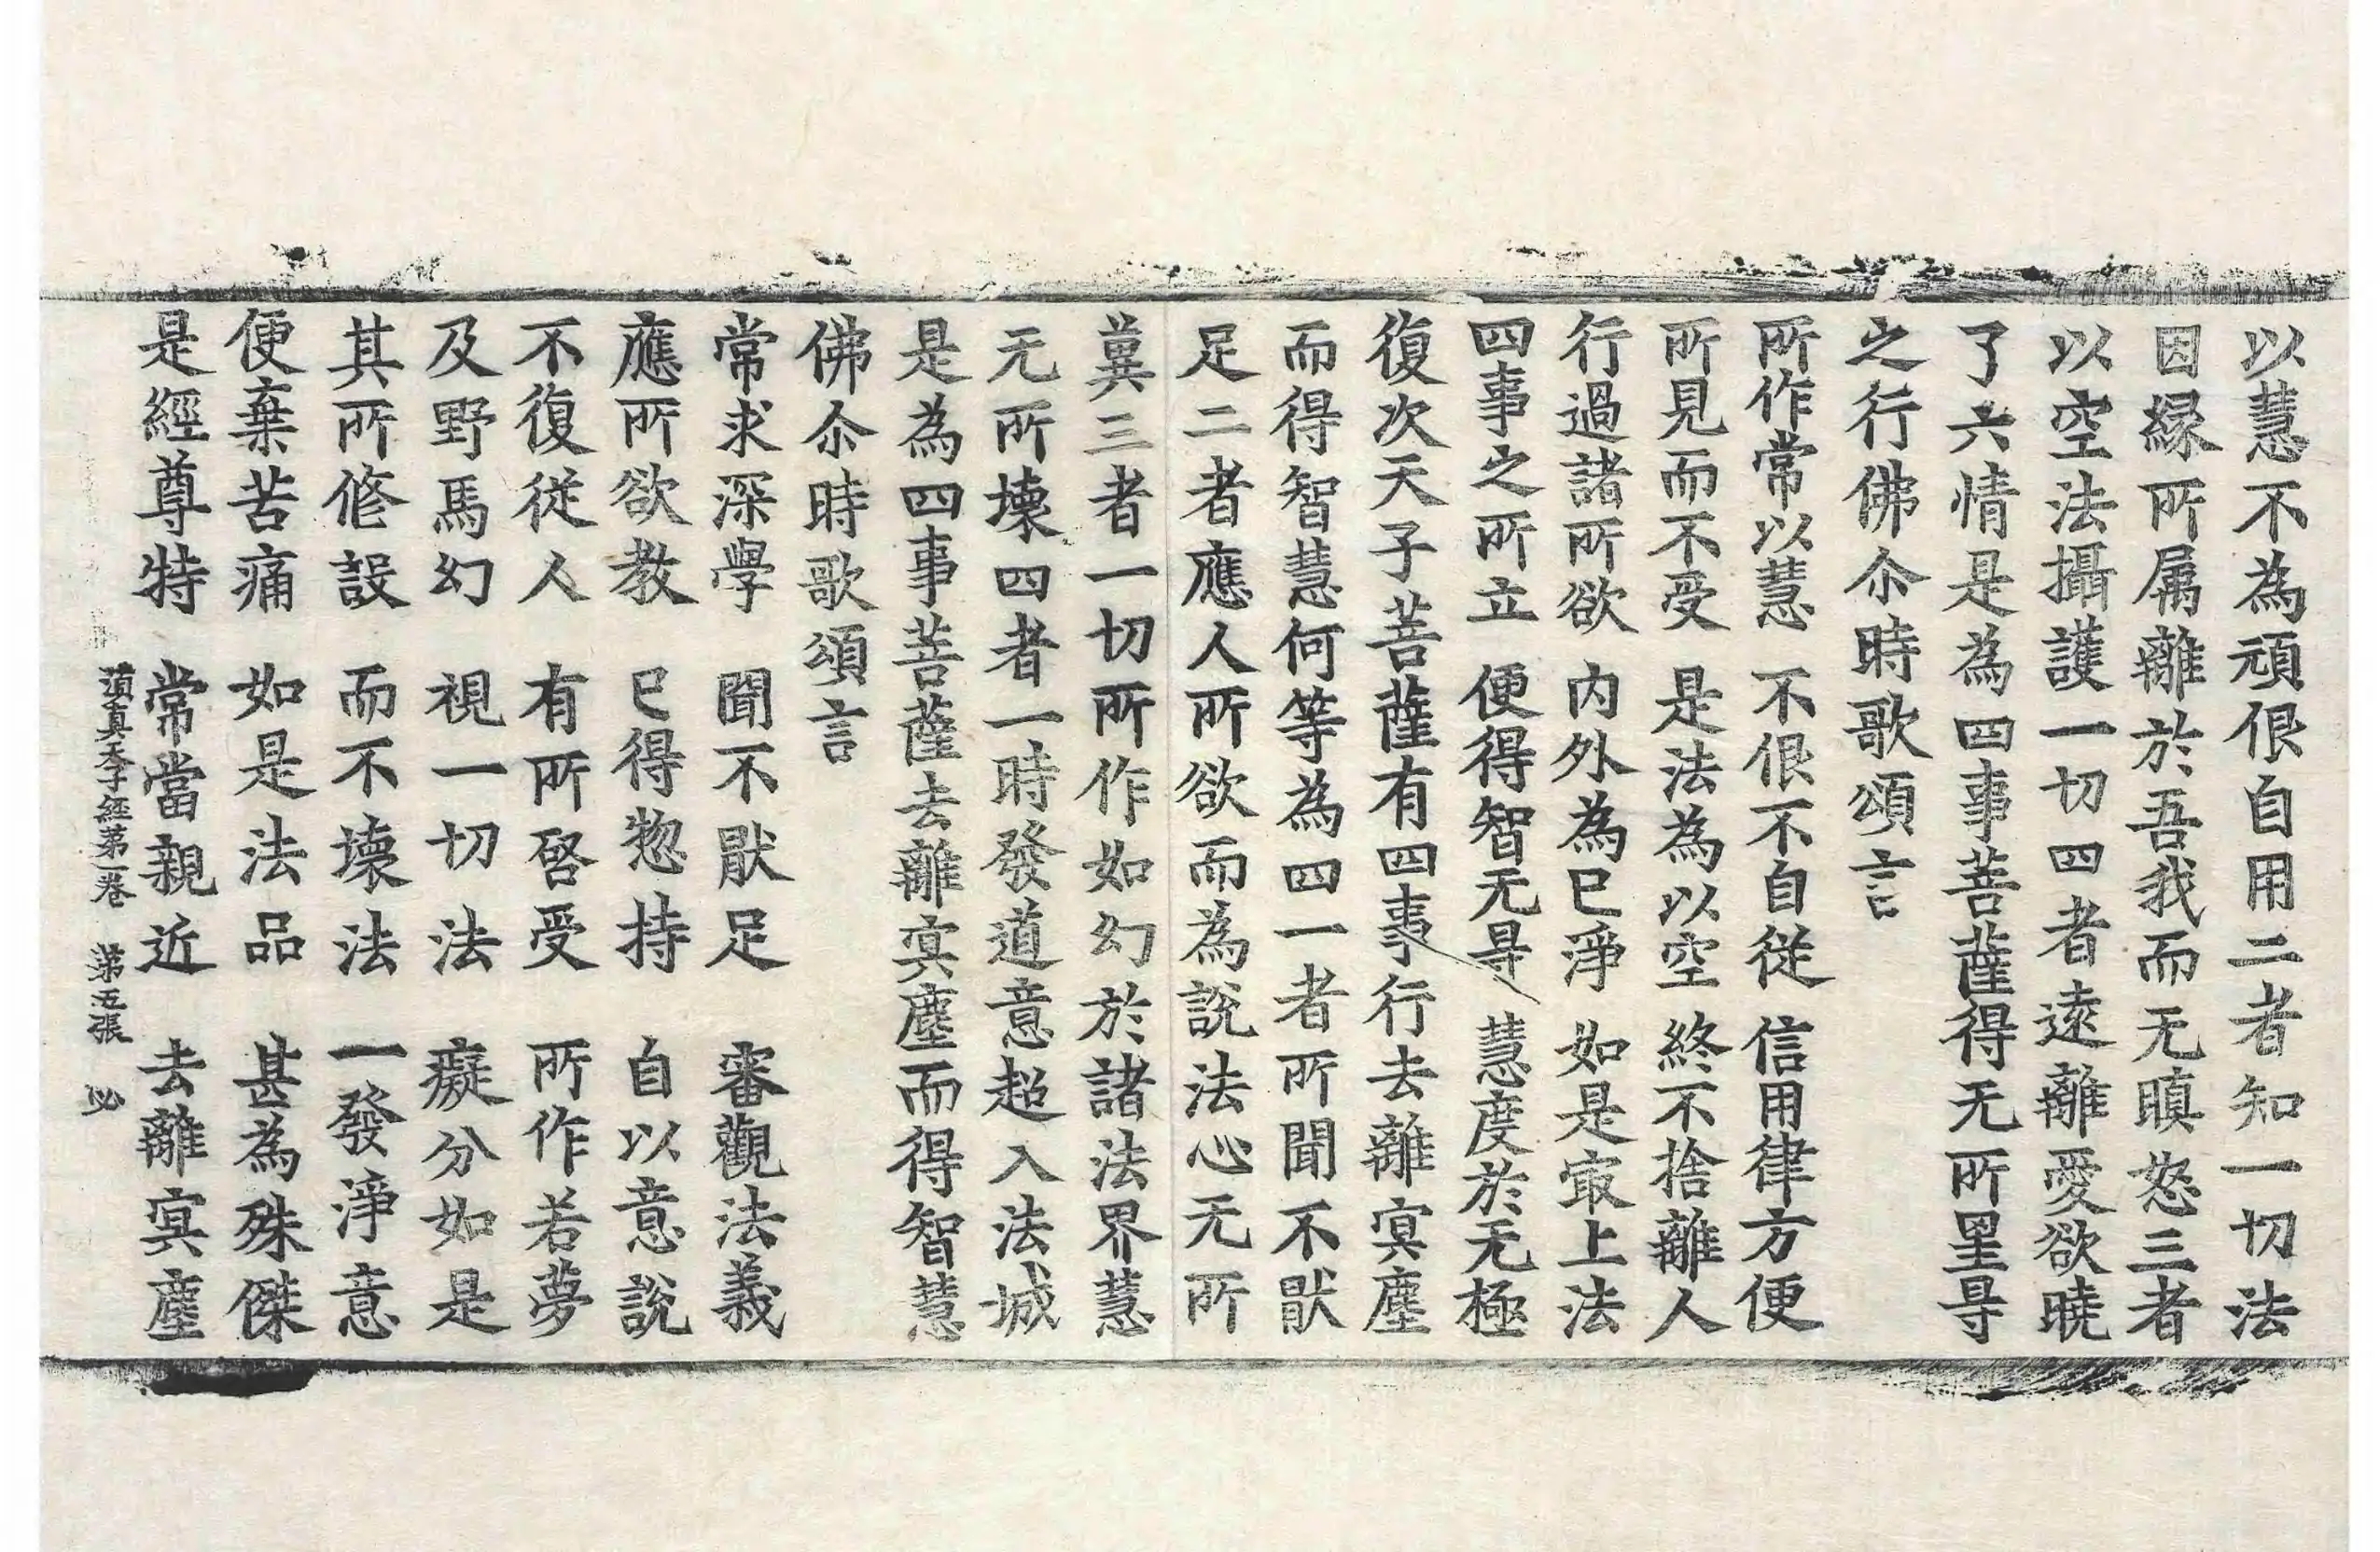 以慧不為頑佷自用二者知一切法
因縁所属離於吾我而无瞋怒三者
以空法攝護一切四者遠離愛欲曉
了六情是為四事菩薩得无所罣㝵
之行佛尒時歌頌言
所作常以慧　不佷不自從　信用律方便
所見而不受　是法為以空　終不捨離人
行過諸所欲　内外為已淨　如是㝡上法
四事之所立　便得智无㝵　慧度於无極
復次天子菩薩有四事行去離㝠塵
而得智慧何等為四一者所聞不猒
足二者應人所欲而為說法心无所
兾三者一切所作如幻於諸法界慧
无所壊四者一時發道意超入法城
是為四事菩薩去離㝠塵而得智慧
佛尒時歌頌言
常求深學　聞不猒足　審觀法義
應所欲教　已得惣持　自以意說
不復從人　有所啓受　所作若夢
及野馬幻　視一切法　癡分如是
其所修設　而不壊法　一發淨意
便棄苦痛　如是法品　甚為殊傑
是經尊特　常當親近　去離㝠塵
須真天子經第一卷　第五張　必